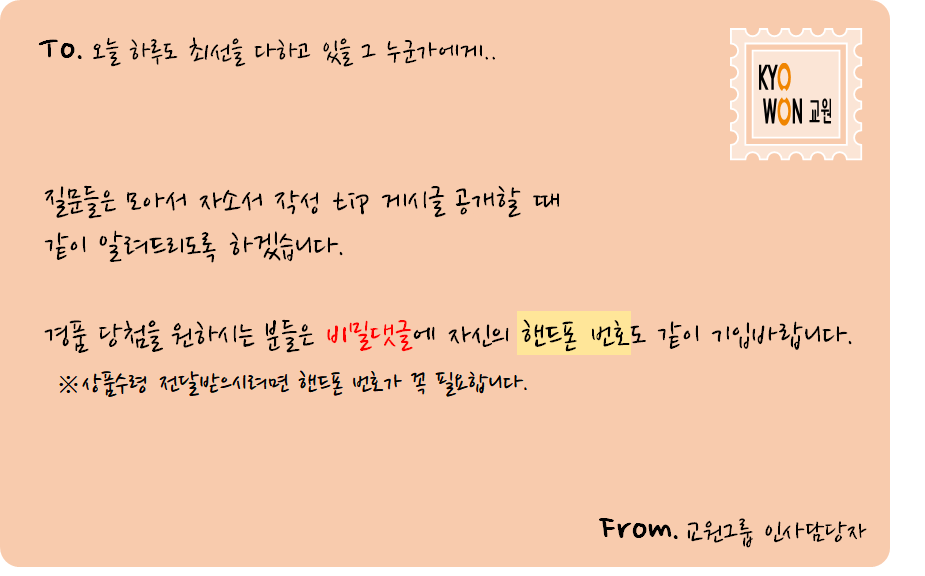 To. 오늘 하루도 최선을 다하고 있을 그 누군가에게..
KYO
WON 교원
질문들은 모아서 자소서 작성 tip 게시글 공개할 때
같이 알려드리도록 하겠습니다.
경품 당첨을 원하시는 분들은 비밀댓글에 자신의 핸드폰 번호도 같이 기입바랍니다.
※상품수령 전달받으시려면 핸드폰 번호가 꼭 필요합니다.
From. 교원그룹 인사담당자